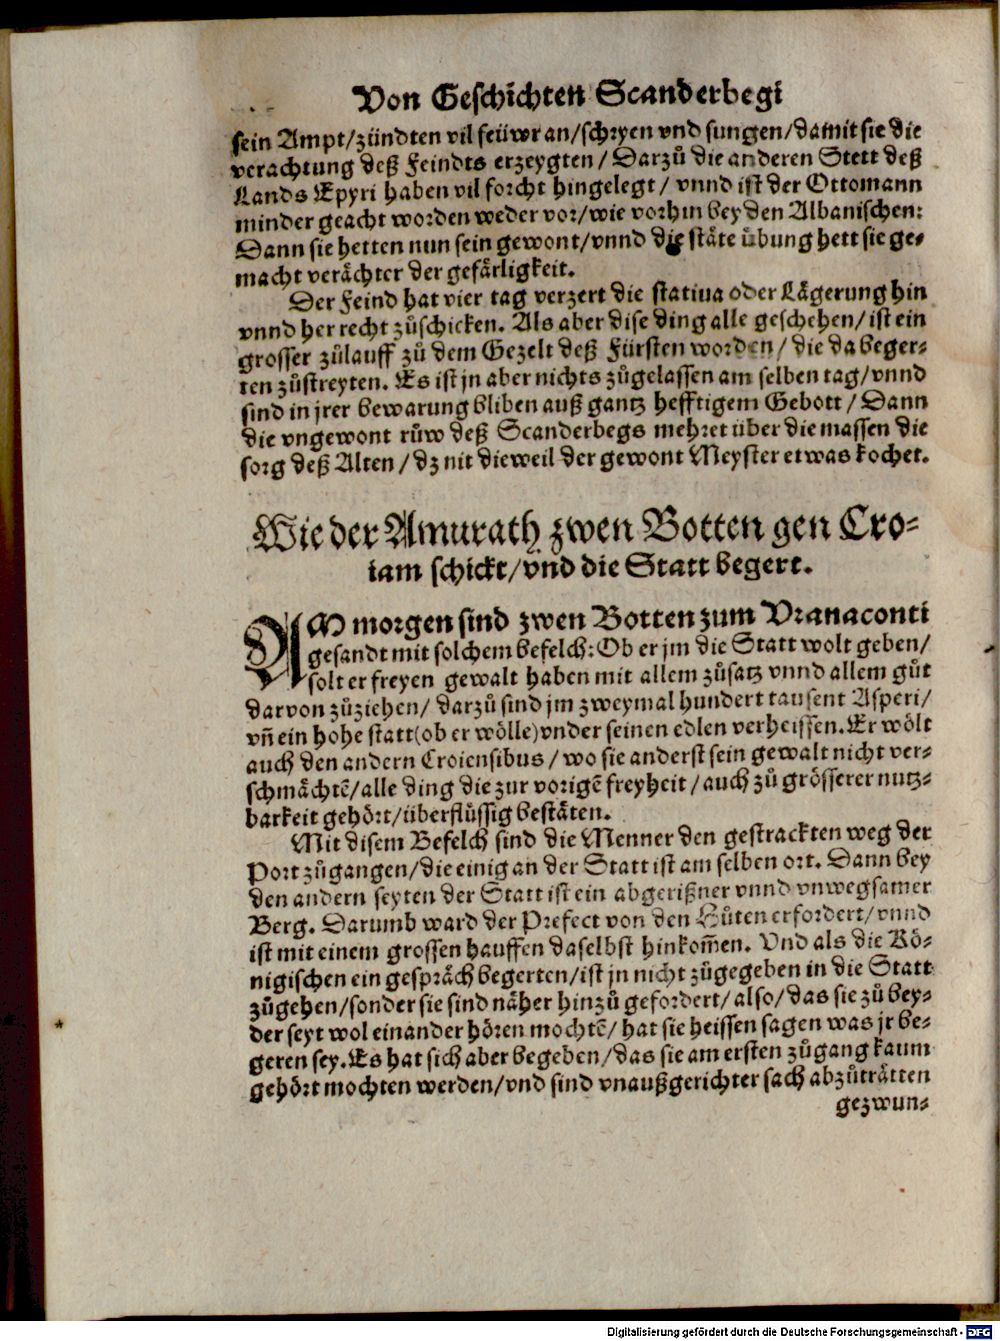 Von Geschichten Scanderbegi
sein Ampt/zündten vil feüwr an/schryen vnd sungen/damit sie die
verachtung deß Feindts erzeygten/ Darzů die anderen Stett deß
Lands Epyri haben vil forcht hingelegt/ vnnd ist der Ottomann
minder geacht worden weder vor/wie vorhin bey den Albanischen:
Dann sie hetten nun sein gewont/vnnd die stäte übung hett sie ge⸗
macht verächter der gefärligkeit.
Der Feind hat vier tag verzert die statiua oder Lägerung hin
vnnd her recht zůschicken. Als aber dise ding alle geschehen/ ist ein
grosser zůlauff zů dem Gezelt deß Fürsten worden/ die da beger⸗
ten zůstreyten. Es ist jn aber nichts zůgelassen am selben tag/vnnd
sind in jrer bewarung bliben auß gantz hefftigem Gebott/ Dann
die vngewont růw deß Scanderbegs mehret über die massen die
sorg deß Alten/dz nit dieweil der gewont Meyster etwas kochet.
Wie der Amurath zwen Botten gen Cro⸗
iam schickt/vnd die Statt begert.
AM morgen sind zwen Botten zum Vranaconti
gesandt mit solchem befelch: Ob er jm die Statt wolt geben/
solt er freyen gewalt haben mit allem zůsatz vnnd allem gůt
darvon zůziehen/ darzů sind jm zweymal hundert tausent Asperi/
vñ ein hohe statt(ob er wölle)vnder seinen edlen verheissen. Er wölt
auch den andern Croiensibus/ wo sie anderst sein gewalt nicht ver⸗
schmächtẽ/alle ding die zur vorigẽ freyheit/auch zů grösserer nutz⸗
barkeit gehört/überflüssig bestäten.
Mit disem Befelch sind die Menner den gestrackten weg der
Port zůgangen/die einig an der Statt ist am selben ort. Dann bey
den andern seyten der Statt ist ein abgerißner vnnd vnwegsamer
Berg. Darumb ward der Prefect von den Hůten erfordert/vnnd
ist mit einem grossen hauffen daselbst hinkom̃en. Vnd als die Kö⸗
nigischen ein gespräch begerten/ist jn nicht zůgegeben in die Statt
zůgehen/sonder sie sind näher hinzů gefordert/also/das sie zů bey⸗
der seyt wol einander hören mochtẽ/ hat sie heissen sagen was jr be⸗
geren sey. Es hat sich aber begeben/das sie am ersten zůgang kaum
gehört mochten werden/vnd sind vnaußgerichter sach abzůträtten
gezwun⸗
Digitalisierung gefördert durch die Deutsche Forschungsgemeinschaft - DFG